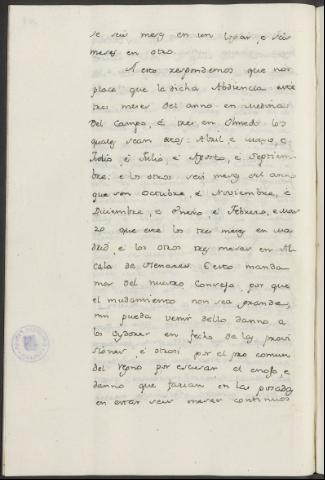 se seis meses en un logar, e seis
meses en otro.
A esto respondemos que nos
place que la dicha Abdiencia esté
tres meses del anno en Medina
del Campo, é tres en Olmedo los
quales sean estos: Abril, e Mayo, e
Junio, é Julio, é Agosto, é Septiem-
bre: e los otros seis meses del anno
que son Octubre, é Noviembre, é
Diciembre, e Enero é Febrero, e Mar-
zo que esté los tres meses en Ma-
drid, é los otros tres meses en Al-
cala de Henares. E esto manda-
mos del nuestro Consejo, por que
el mudamiento non sea grande,
nin pueda venir dello danno a
los oydores en fecho de las provi
siones, é otrosi por el pro comun
del regno por escusar el enojo, e
danno que farian en las posadas
en estar seis meses continuos